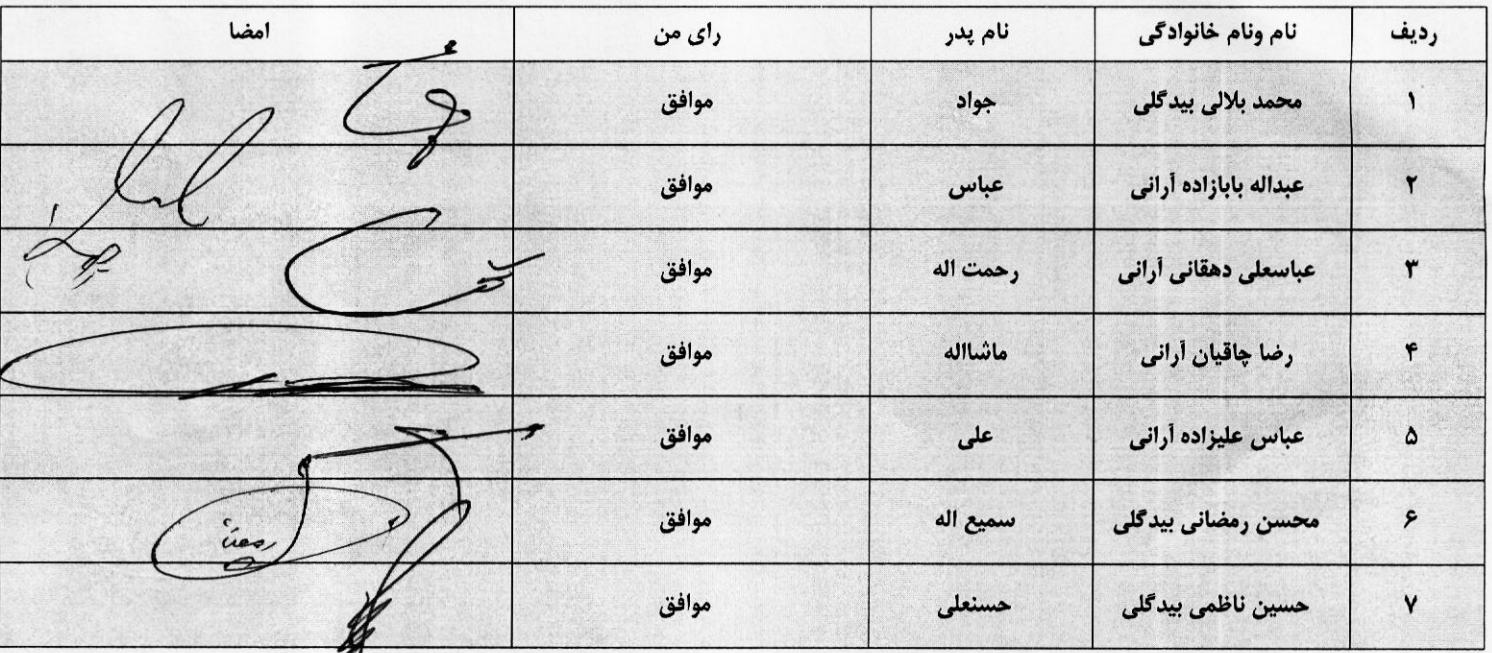 ردیف نام ونام خانوادگی نام پدر رای من امضا
۱ محمد بلالی بیدگلی جواد موافق
۲ عبداله بابازاده آرانی عباس موافق
۳ عباسعلی دهقانی آرانی رحمت اله موافق
۴ رضا چاقیان آرانی ماشااله موافق
۵ عباس علیزاده آرانی علی موافق
۶ محسن رمضانی بیدگلی سمیع اله موافق
۷ حسین ناظمی بیدگلی حسنعلی موافق